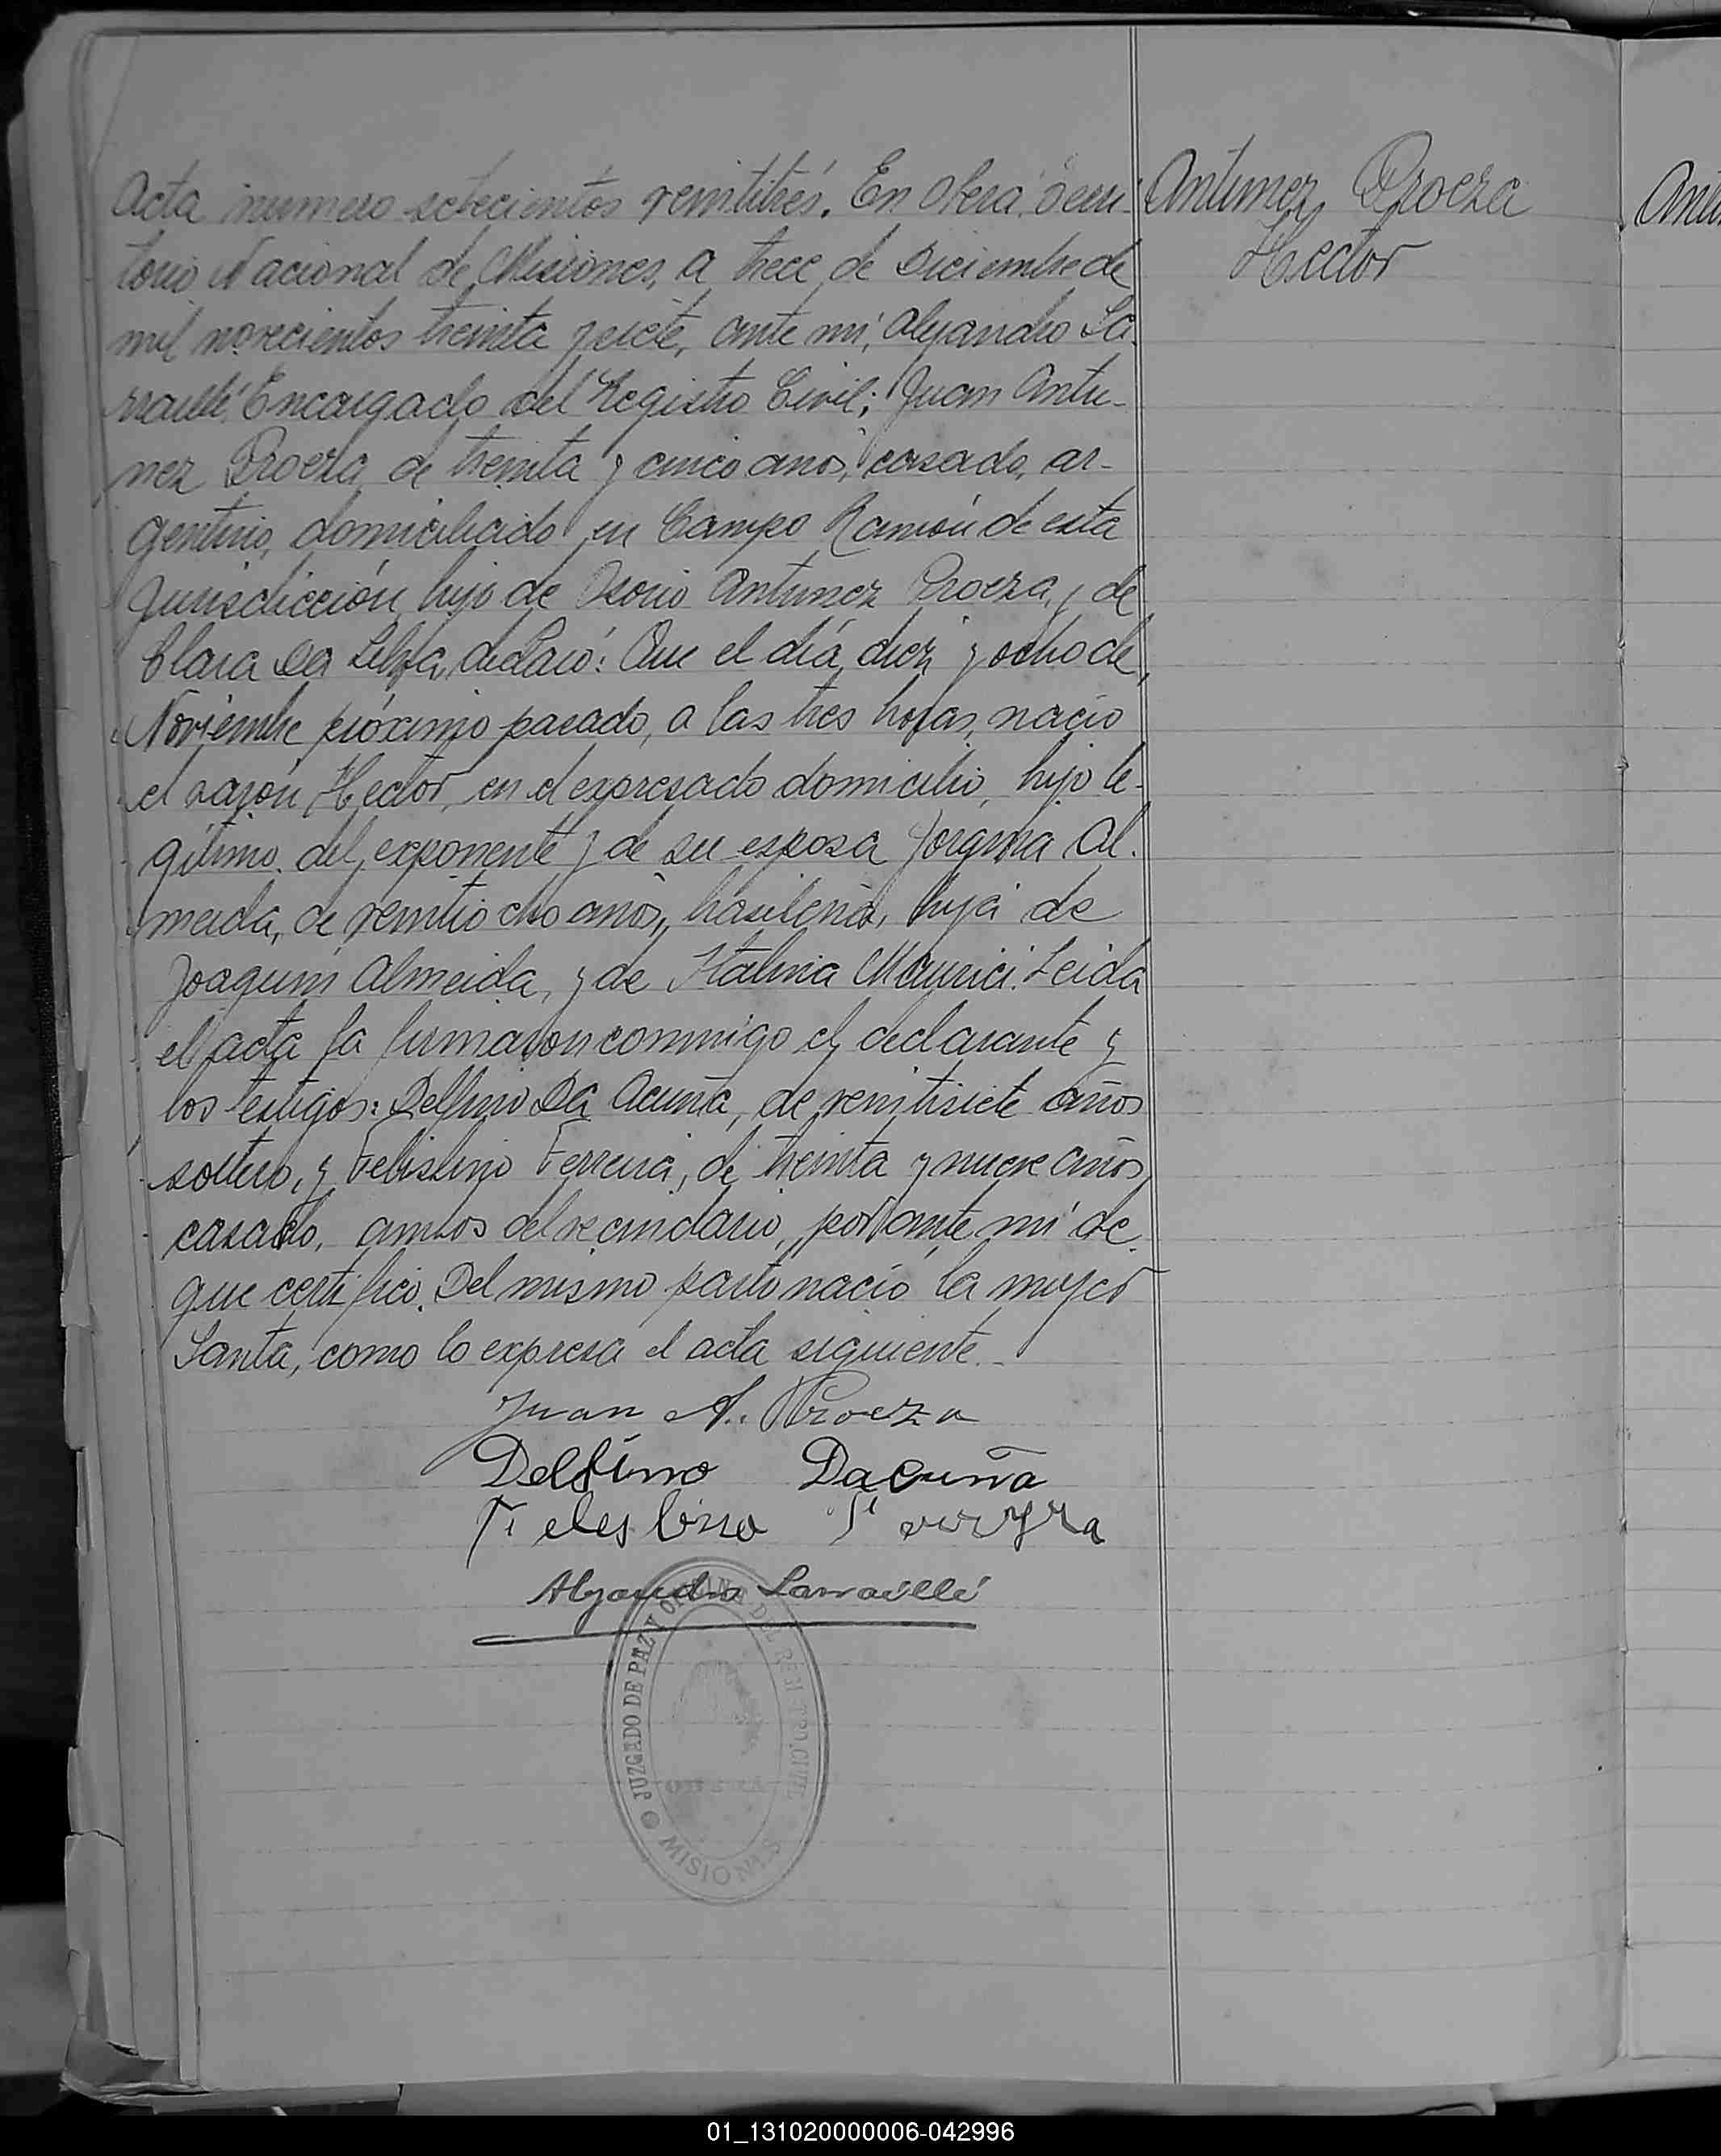 Acta numero setecientos veintitrés. En Oberá, Terri-
torio Nacional de Misiones, a trece de Diciembre de
mil novecientos treinta y siete, ante mí, Alejandro La-
rraullé, Encargado del Registro Civil; Juan Antu-
nez Proeza, de treinta y cinco años, casado, ar-
gentino, domiciliado en Campo Ramón de esta
Jurisdicción, hijo de Osorio Antunez Proeza, y de
Clara Da Silva, declaró: Que el día diez y ocho de
Noviembre próximo pasado, a las tres horas, nació
el varón Hector, en el expresado domicilio, hijo le-
gítimo del exponente y de su esposa Al-
meida, de veintiocho años, brasileña, hija de
Joaquín Almeida, y de Italina Maurici. Leida
el acta la firmaron conmigo el declarante y
los testigos: Delfino Da Acuña, de veintisiete años
soltero, y Felisbino Ferreira, de treinta y nueve años,
casado, ambos del vecindario, por ante mí de
que certifico. Del mismo parto nació la mujer
Santa, como lo expresa el acta siguiente.-
Juan A. Proeza
Delfino Dacuña
Felesbino
Alejandro Larraullé
JUZGADO DE PAZ Y OFICINA DEL REGISTRO CIVIL
OBERA
MISIONES
Antunez Proeza
Hector
01_131020000006-042996